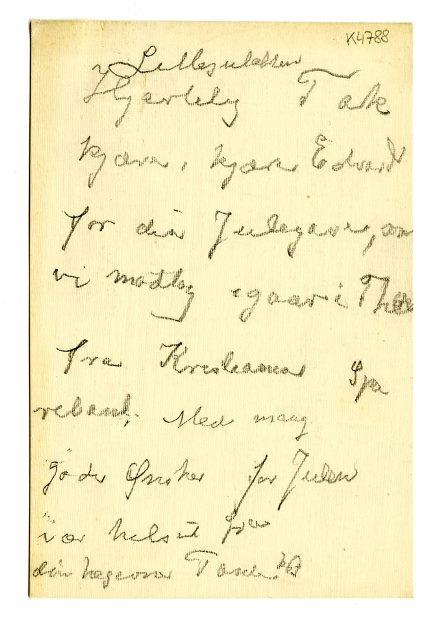 K4788
Lillejulaften
Hjertelig Tak
kjære, kjære Edvard
for din Julegave, som
vi modtog igaar i
fra Kristiania Spa
rebank. Med mang
gode Ønsker for Julen
vær hilset fra
din hengivne Tante